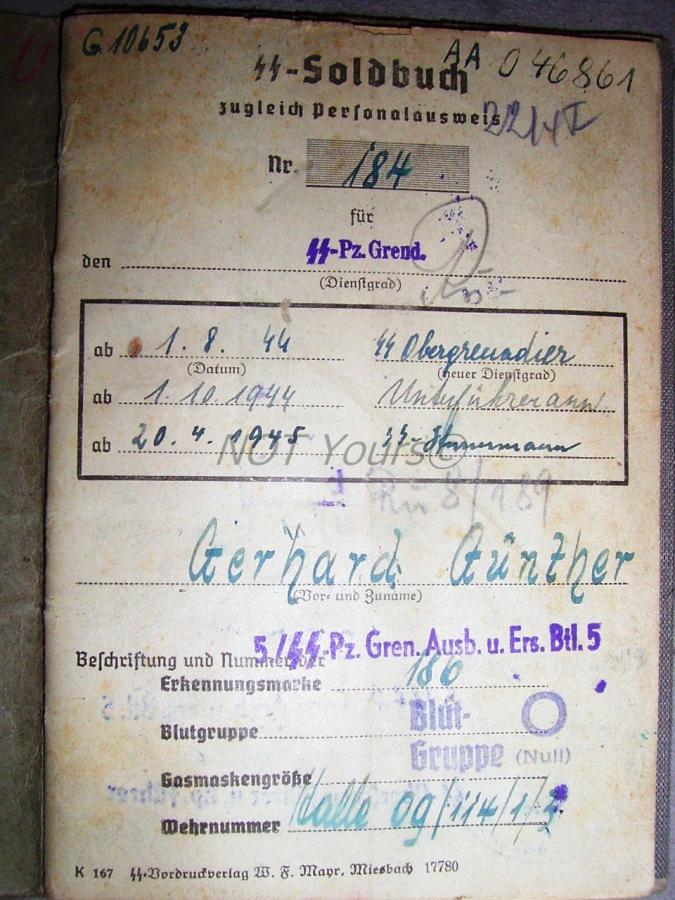 G 10653
AA 046861
SS-Soldbuch
zugleich Personalausweis
Nr. 184
für
den SS-Pz. Grend.
(Dienstgrad)
ab 1. 8. 44 SS Obergrenadier
(Datum) (neuer Dienstgrad)
ab 1.10.1944
ab 20. 4. 1945 SS-Sturmmann
NOT Yours©
Gerhard Günther
(Vor- und Zuname)
5/SS-Pz. Gren. Ausb. u. Ers. Btl. 5
Beschriftung und Nummer der
Erkennungsmarke 186
Blutgruppe Blut-
Gruppe O (Null)
Gasmaskengröße
Wehrnummer Halle 09/114/1/3
K 167 SS-Vordruckverlag W. F. Mayr, Miesbach 17780